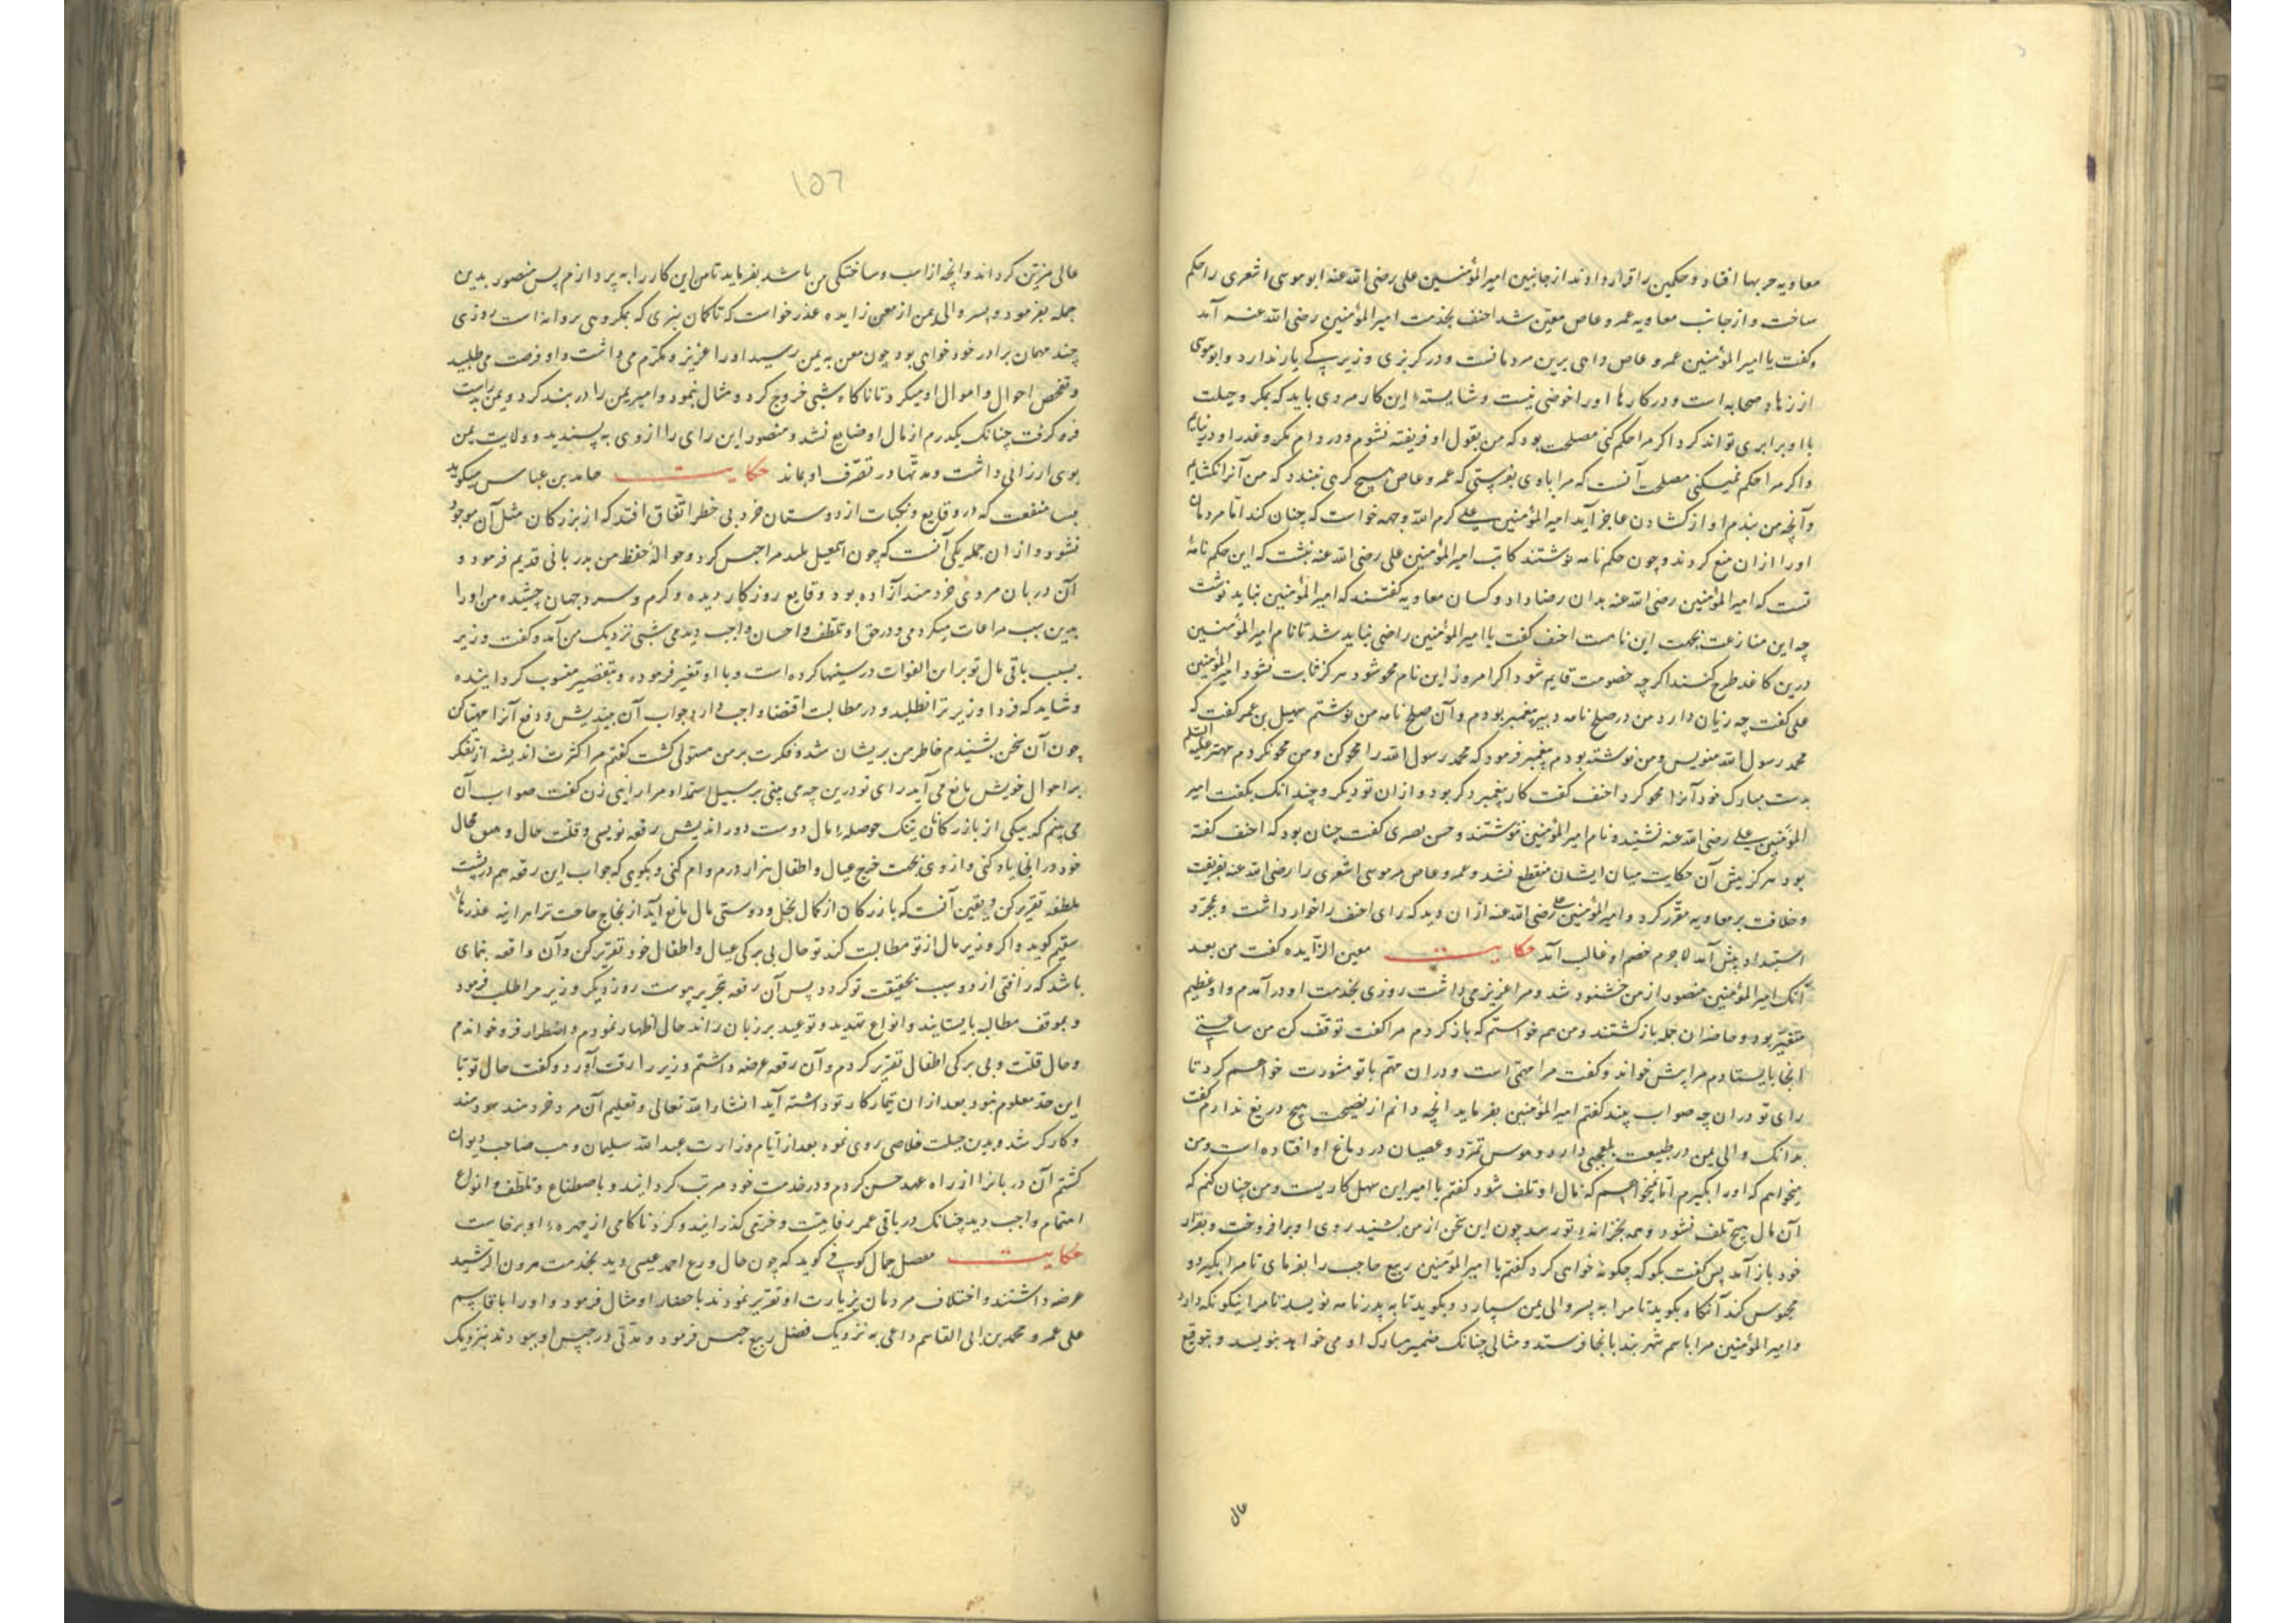 معاویه حربها افتاد و حکمین را قرار دادند از جانبین امیر المؤمنین علی رضی الله عنه ابو موسی اشعری را حکم
ساخت و از جانب معاویه عمرو عاص معین شد احنف بخدمت امیر المؤمنین رضی الله عنه آمد
و کفت یا امیر المؤمنین عمرو عاص داهی برین مردمانست و در کربزی و زیرکی یار ندارد و ابو موسی
از زهاد صحابه است و در کارها او را خوضی نیست و شایسته این کار مردی باید که بمکر و حیلت
با او برابری تواند کرد اکر مرا حکم کنی مصلحت بود که من بقول او فریفته نشوم و در دام مکر و غدر او در نیایم
و اکر مرا حکم نمیکنی مصلحت آنست که مرا با وی بفرستی که عمرو عاص هیچ کرهی نبندد که من آنرا نکشایم
و آنچه من بندم او از کشادن عاجز آید امیر المؤمنین علی کرم الله وجهه خواست که چنان کند اما مردمان
او را از ان منع کردند و چون حکم نامه نوشتند کاتب امیر المؤمنین علی رضی الله عنه نبشت که این حکم نامهٔ
تست که امیر المؤمنین رضی الله عنه بدان رضا داد و کسان معاویه کفتند که امیر المؤمنین نباید نوشت
چه این منازعت بجهت این نامست احنف کفت یا امیر المؤمنین راضی نباید شد تا نام امیر المؤمنین
درین کاغد طرح کنند اکر چه خصومت قایم شود اکر امروز این نام محو شود هرکز ثابت نشود امیر المؤمنین
علی کفت چه زیان دارد من در صلح نامه دبیر پیغمبر بودم و آن صلح نامه من نوشتم سهیل بن عمر کفت که
محمد رسول الله منویس و من نوشته بودم پیغمبر فرمود که محمد رسول الله را محو کن و من محو نکردم مهتر علیه السلم
بدست مبارک خود آنرا محو کرد احنف کفت کار پیغمبر دکر بود و از ان تو دیکر و چندانک بکفت امیر
المؤمنین علی رضی الله عنه نشنید و نام امیر المؤمنین ننوشتند و حسن بصری کفت چنان بود که احنف کفته
بود هرکز بیش آن حکایت میان ایشان منقطع نشد و عمرو عاص مر موسی اشعری را رضی الله عنه بفریفت
و خلافت بر معاویه مقرر کرد و امیر المؤمنین علی رضی الله عنه از ان دید که رای احنف را خوار داشت و بمجرد
استبداد پیش آمد لاجرم خصم او غالب آمد حکایت معین الزایده کفت من بعد
آنک امیر المؤمنین منصور از من خشنود شد و مرا عزیز می داشت روزی بخدمت او در آمدم و او عظیم
متغیر بود و حاضران جمله باز کشتند و من هم خواستم که باز کردم مرا کفت توقف کن من ساعتی
انجا بایستادم مرا پیش خواند و کفت مرا مهمی است و دران مهم با تو مشورت خواهم کرد تا
رای تو دران چه صواب بیند کفتم امیر المؤمنین بفرماید انچه دانم از نصیحت هیچ دریغ ندارم کفت
بدانک والی یمن در طبیعت بلعجبی دارد و هوس تمرد و عصیان در دماغ او افتاده است و من
میخواهم که او را بکیرم اما نمیخواهم که مال او تلف شود کفتم یا امیر این سهل کاریست و من چنان کنم که
آن مال هیچ تلف نشود و همه بخزانه تو رسد چون این سخن از من بشنید روی او برافروخت و بقرار
خود باز آمد پس کفت بکو که چکونه خواهی کرد کفتم یا امیر المؤمنین ربیع حاجب را بفرمای تا مرا بکیرد و
محبوس کند آنکاه بکوید تا مرا به پسر والی یمن سپارد و بکوید تا به پدر نامه نویسد تا مرا نیکو نکه دارد
و امیر المؤمنین مرا باسم شهر بند بانجا فرستد و مثالی چنانک ضمیر مبارک او می خواهد بنویسد و بتوقیع
عالی
۱۵۶
عالی مزین کرداند و انچه از اسب و ساختکی من باشد بفرماید تا من این کار را به پردازم پس منصور بدین
جمله بفرمود و پسر والی یمن از معن زایده عذر خواست که تا کمان نبری که بمکروهی بروانه است روزی
چند مهمان برادر خود خواهی بود چون معن به یمن رسید او را عزیز و مکرم می داشت و او فرصت می طلبید
و تفحص احوال و اموال او میکرد تا ناکاه شبی خروج کرد و مثال بنمود و امیر یمن را در بند کرد و یمن راست
فرو کرفت چنانک یکدرم از مال او ضایع نشد و منصور این رای را از وی به پسندید و ولایت یمن
بوی ارزانی داشت و مدتها در تصرف او بماند حکایت حامد بن عباس میکوید
بسا منفعت که در وقایع و نکبات از دوستان خرد بی خطر اتفاق افتد که از بزرکان مثل آن موجود
نشود و از ان جمله یکی آنست که چون اسمعیل بلبد مرا حبس کرد و حوالهٔ حفظ من بدربانی قدیم فرمود و
آن دربان مردی خردمند آزاده بود و وقایع روزکار دیده و کرم و سرد جهان چشیده من او را
بدین سبب مراعات میکردمی و در حق او تلطف و احسان واجب دیدمی شبی نزدیک من آمد و کفت وزیر
بسبب باقی مال تو بر ابن الفرات در سینها کرده است و با او تغیر فرموده و بتقصیر منسوب کردانیده
و شاید که فردا وزیر ترا بطلبد و در مطالبت اقتضا واجب دارد جواب آن بیندیش و دفع آنرا مهیا کن
چون آن سخن بشنیدم خاطر من پریشان شد و فکرت بر من مستولی کشت کفتم مرا کثرت اندیشه از تفکر
بر احوال خویش مانع می آید رای تو درین چه می بینی بر سبیل استمداد مرا رایی زن کفت صواب آن
می بینم که بیکی از بازرکانان تنک حوصلهٔ مال دوست دور اندیش رقعه نویسی و قلت حال و ضیق مجال
خود در انجا یاد کنی و از وی بجهت خرج عیال و اطفال هزار درم وام کنی و بکویی که جواب این رقعه هم در پشت
ملطفه تقریر کن و یقین آنست که بازرکان از کمال بخل و دوستی مال مانع آید از نجاح حاجت ترا هر اینه عذرها
سقیم کوید و اکر وزیر مال از تو مطالبت کند تو حال بی برکی عیال و اطفال خود تقریر کن و آن واقعه بنمای
باشد که رافتی از دو سبب بحقیقت تو کردد پس آن رقعه بتحریر پیوست روز دیکر وزیر مرا طلب فرمود
و بموقف مطالبه بایستانید و انواع تهدید و توعید بر زبان راند حال اظهار نمودم و اضطرار فرو خواندم
و حال قلت و بی برکی اطفال تقریر کردم و آن رقعه عرضه داشتم وزیر را رقت آورد و کفت حال تو تا
این حد معلوم نبود بعد از ان تیمار کار تو داشته آید انشاء الله تعالی و تعلیم آن مرد خردمند سودمند
و کارکر شد و بدین حیلت خلاصی روی نمود بعد از ایام وزارت عبد الله سلیمان وهب صاحب دیوان
کشتم آن دربانرا از راه عهد حسن کردم و در خدمت خود مرتب کردانید و باصطناع و تلطف و انواع
اهتمام واجب دید چنانک در باقی عمر رفاهیت و خرمی کذرانید و کرد ناکامی از چهرهٔ او برخاست
حکایت مفصل جمال کوفی کوید که چون حال ورع احمد عیسی وید بخدمت هرون الرشید
عرضه داشتند و اختلاف مردمان بزیارت او تقریر نمودند باحضار او مثال فرمود و او را با قاسم
علی عمرو محمد بن ابی القاسم داعی به نزدیک فضل ربیع حبس فرمود و مدتی در حبس او ببودند بنزدیک